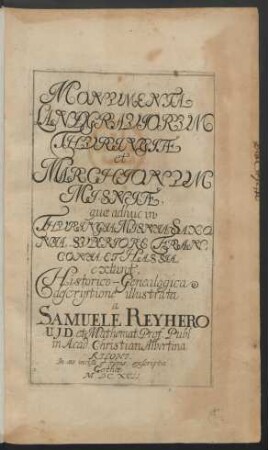 MONUMENTA
LANDGRAVIORUM
THURINGIÆ
et
MARCHIONUM
MISNIÆ,
quæ adhuc in
THURINGIA, MISNIA, SAXO
NIA SUPERIORE, FRAN
CONIA ET HASSIA
extant,
Historico-Genealogica
descriptione illustrata
a
SAMUELE REYHERO
U.J.D. et Mathemat. Prof. Publ.
in Acad. Christian Albertina
KILONI.
In æs incisa et typis exscripta
Gothæ